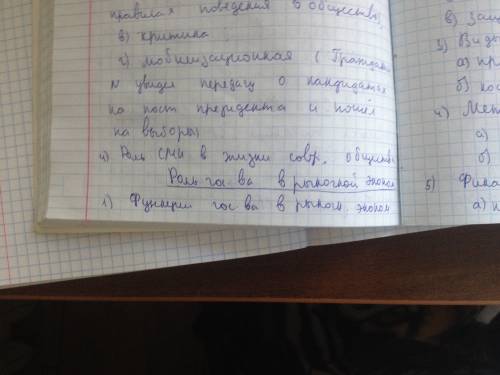 правилах поведения в обществе)
в) критика
г) мобилизационная (Граждан
N увидел передачу о кандидатах
на пост президента и пошёл
на выборы)
4) Роль СМИ в жизни совр. обществ
Роль гос-ва в рыночной эконом
1) Функции гос-ва в рыноч. эконом
в) Защ
3) Виды
а) пр
б) кос
4) Мет
а)
б)
5) Фина
а) н